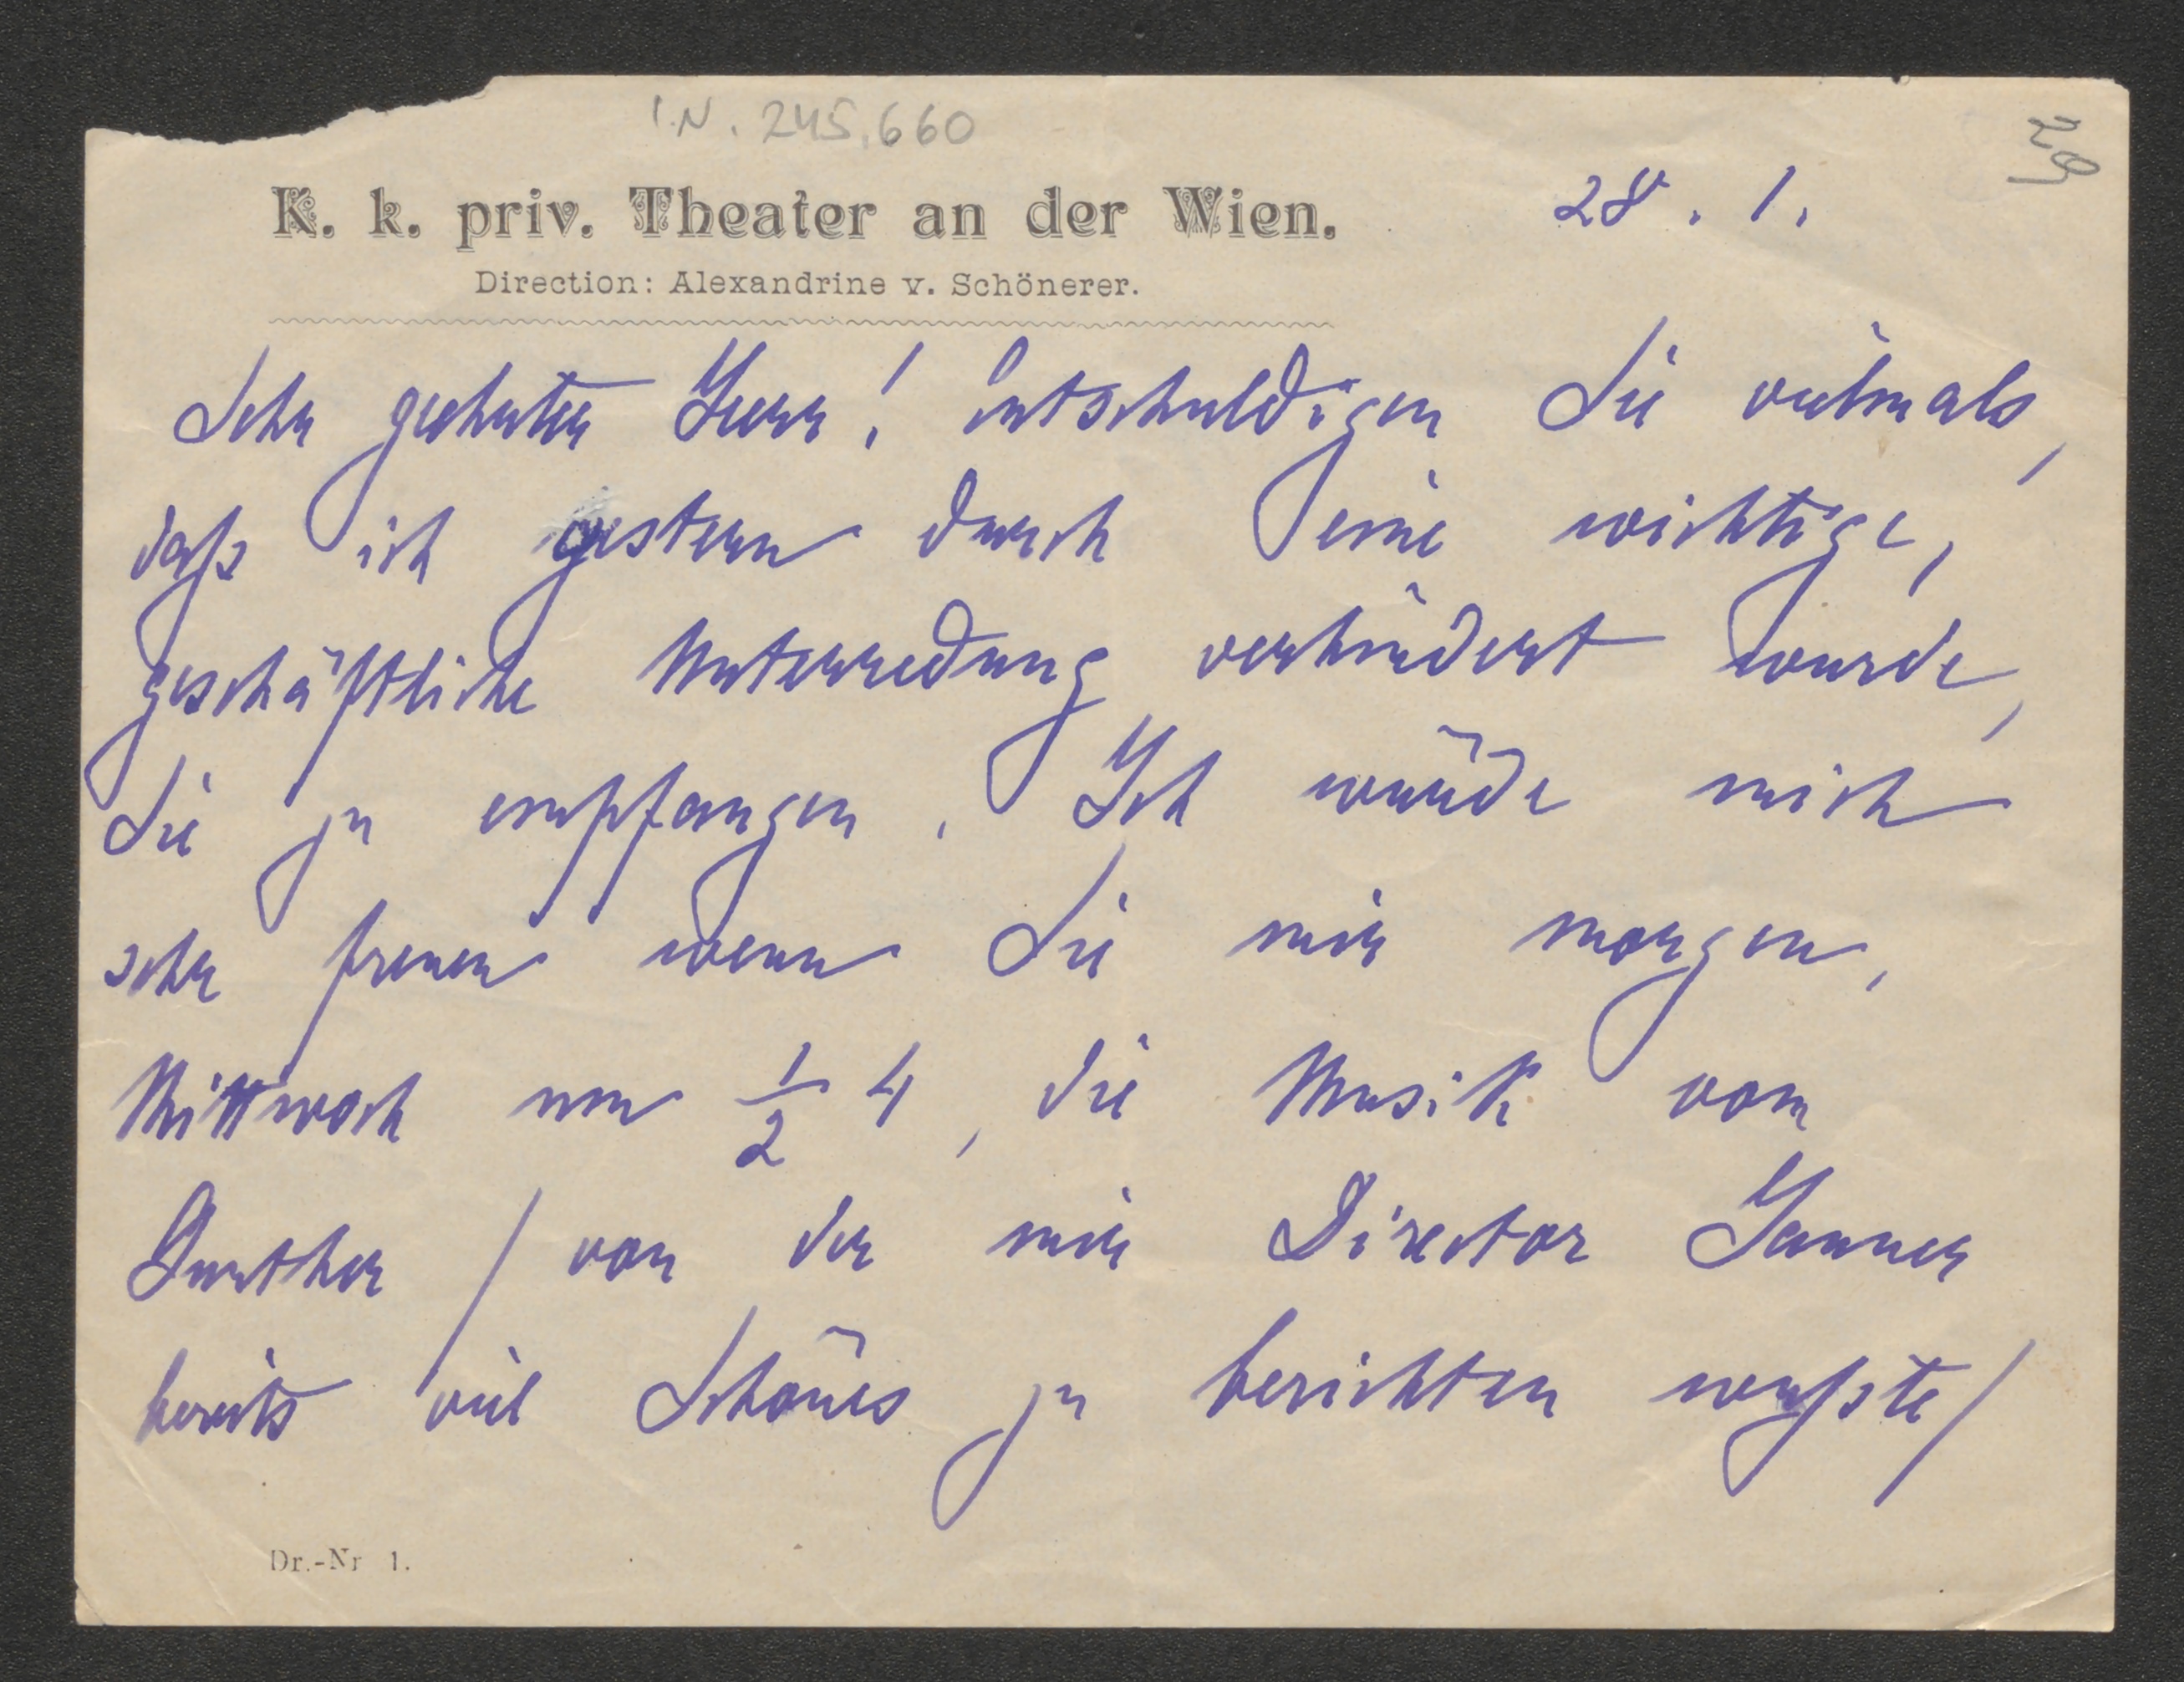 I.N. 245.660
29
K. k. priv. Theater an der Wien.
28. 1.
Direction: Alexandrine v. Schönerer.
Sehr geehrter Herr! Entschuldigen Sie vielmals,
daß ich gestern durch eine wichtige,
geschäftliche Unterredung verhindert wurde,
Sie zu empfangen. Ich würde mich
sehr freuen wenn Sie mir morgen,
Mittwoch um 1/2 4, die Musik vom
Gunther / von der mir Director Janner
bereits viel Schönes zu berichten wußte /
Dr.-Nr 1.